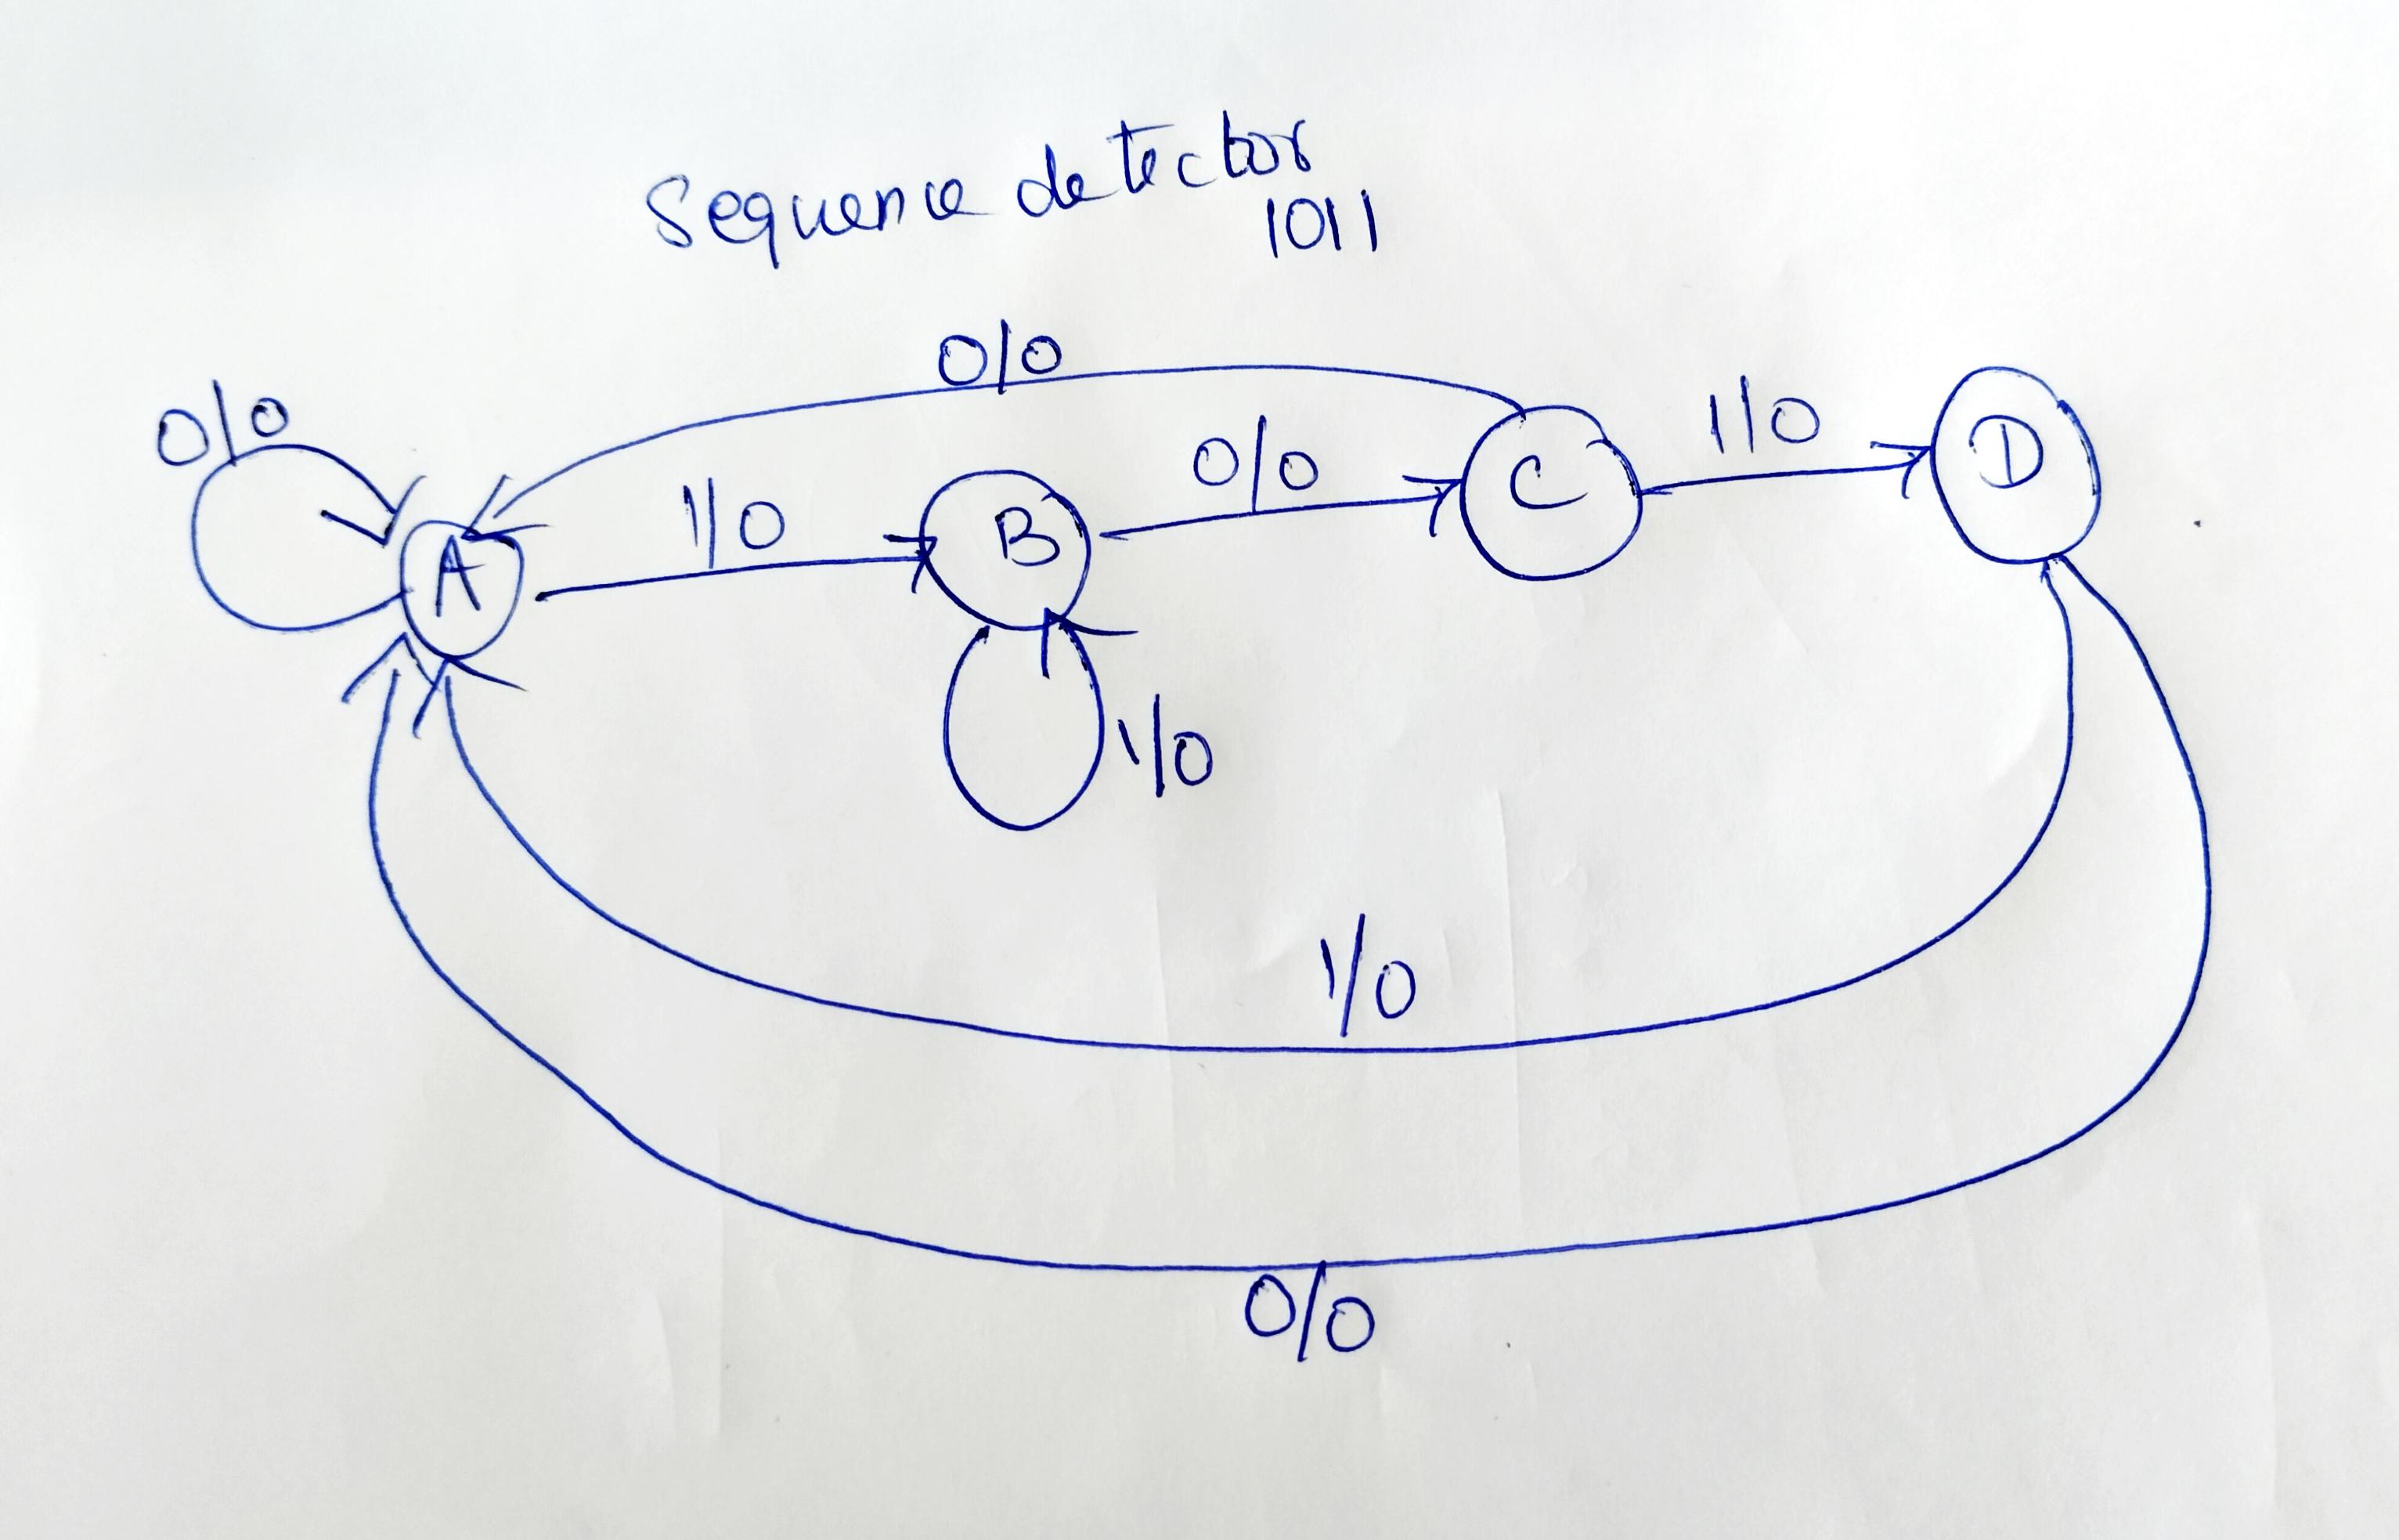 Sequence detector
1011
0/0
0/0
1/0
0/0
1/0
A
B
C
D
1/0
1/0
0/0